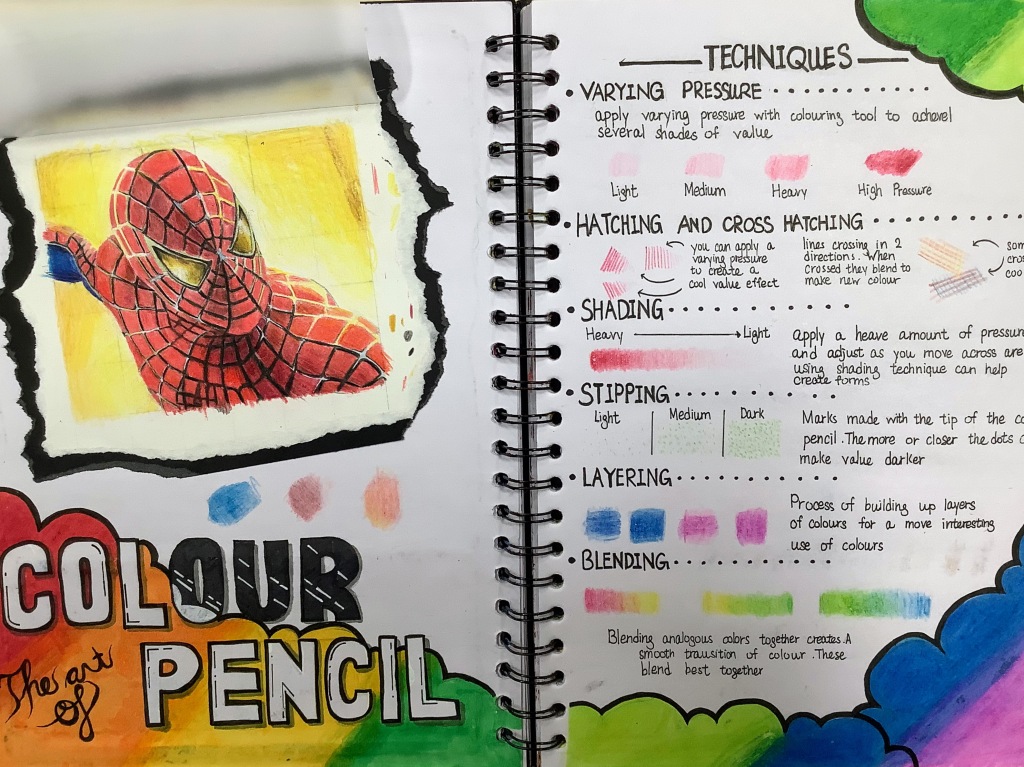 COLOUR
The art
of
PENCIL
TECHNIQUES
• VARYING PRESSURE
apply varying pressure with colouring tool to achevel
several shades of value
Light Medium Heavy High Pressure
• HATCHING AND CROSS HATCHING
you can apply a
varying pressure
to create a
cool value effect
lines crossing in 2
directions. When
crossed they blend to
make new colour
• SHADING
Heavy Light
apply a heave amount of pressure
and adjust as you move across are
using shading technique can help
create forms
• STIPPING
Light Medium Dark
Marks made with the tip of the
pencil. The more or closer the dots
make value darker
• LAYERING
Process of building up layers
of colours for a move interesting
use of colours
• BLENDING
Blending analogous colors together creates. A
smooth transition of colour. These
blend best together